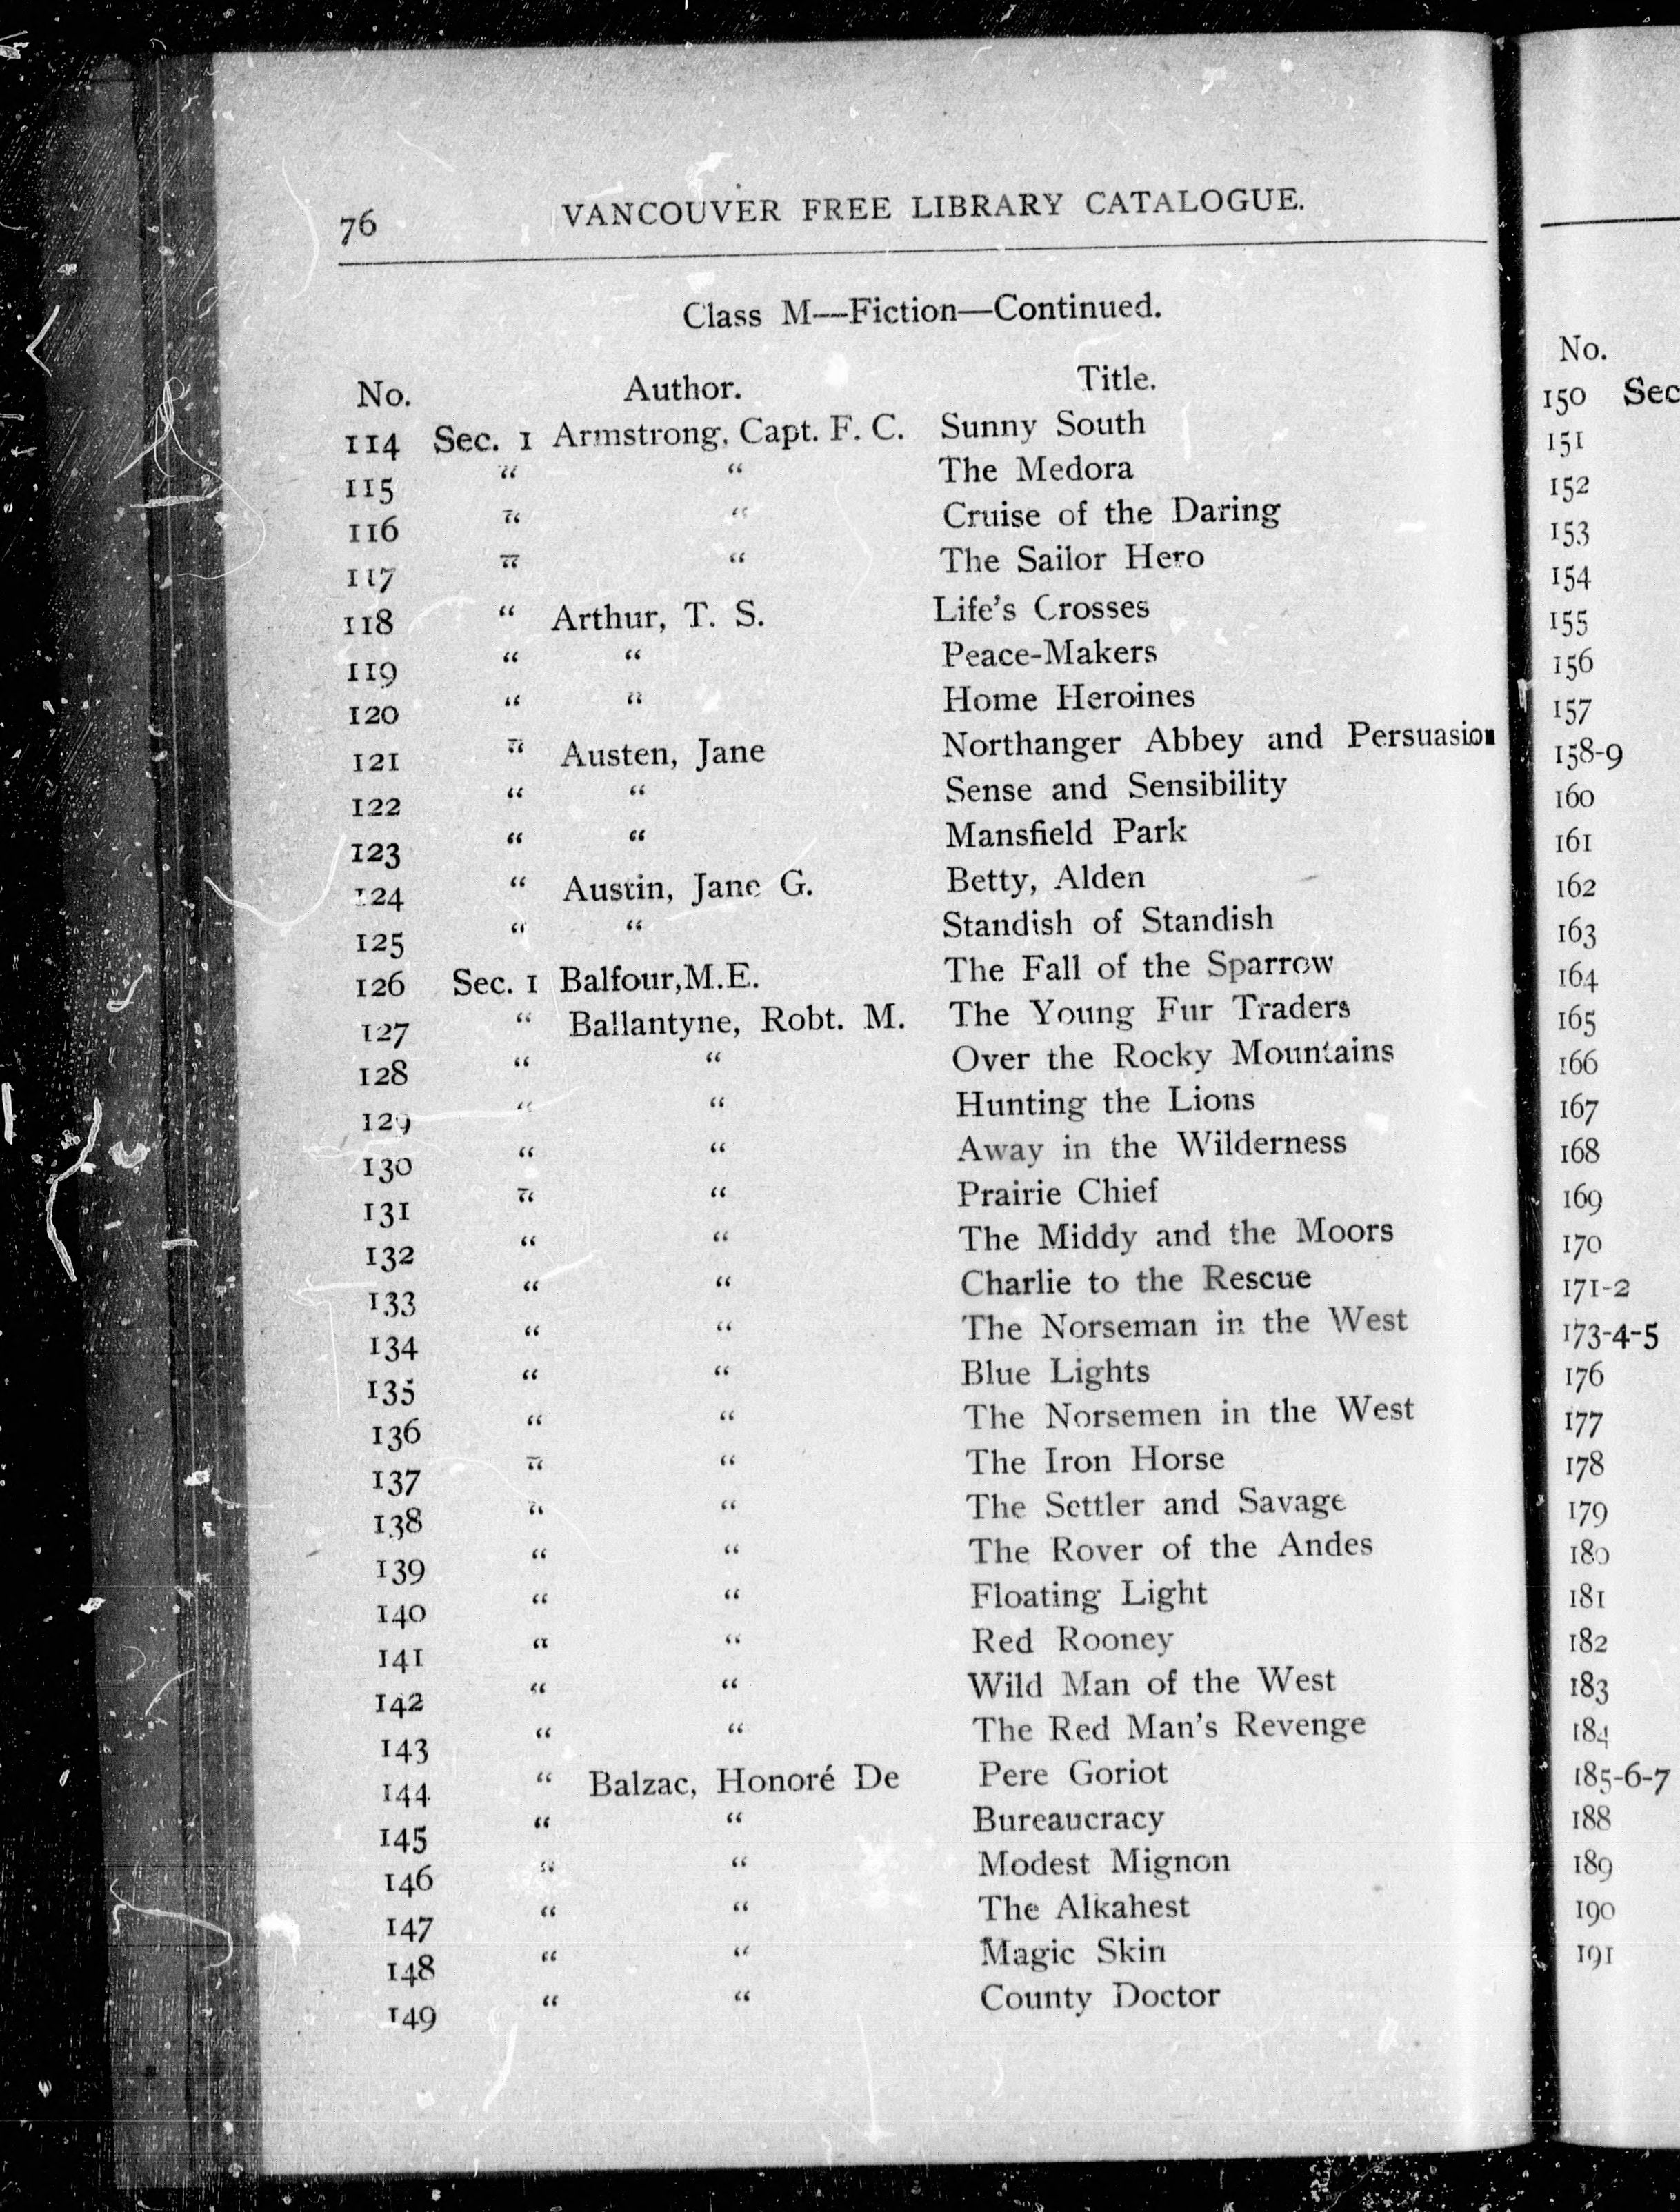 76 VANCOUVER FREE LIBRARY CATALOGUE.
Class M—Fiction—Continued.
No. Author. Title.
114 Sec. 1 Armstrong, Capt. F. C. Sunny South
115 “ “ The Medora
116 “ “ Cruise of the Daring
117 “ “ The Sailor Hero
118 “ Arthur, T. S. Life's Crosses
119 “ “ Peace-Makers
120 “ “ Home Heroines
121 “ Austen, Jane Northanger Abbey and Persuasion
122 “ “ Sense and Sensibility
123 “ “ Mansfield Park
124 “ Austin, Jane G. Betty, Alden
125 “ “ Standish of Standish
126 Sec. 1 Balfour,M.E. The Fall of the Sparrow
127 “ Ballantyne, Robt. M. The Young Fur Traders
128 “ “ Over the Rocky Mountains
129 “ “ Hunting the Lions
130 “ “ Away in the Wilderness
131 “ “ Prairie Chief
132 “ “ The Middy and the Moors
133 “ “ Charlie to the Rescue
134 “ “ The Norseman in the West
135 “ “ Blue Lights
136 “ “ The Norsemen in the West
137 “ “ The Iron Horse
138 “ “ The Settler and Savage
139 “ “ The Rover of the Andes
140 “ “ Floating Light
141 “ “ Red Rooney
142 “ “ Wild Man of the West
143 “ “ The Red Man's Revenge
144 “ Balzac, Honoré De Pere Goriot
145 “ “ Bureaucracy
146 “ “ Modest Mignon
147 “ “ The Alkahest
148 “ “ Magic Skin
149 “ “ County Doctor
No.
150 Sec
151
152
153
154
155
156
157
158-9
160
161
162
163
164
165
166
167
168
169
170
171-2
173-4-5
176
177
178
179
180
181
182
183
184
185-6-7
188
189
190
191